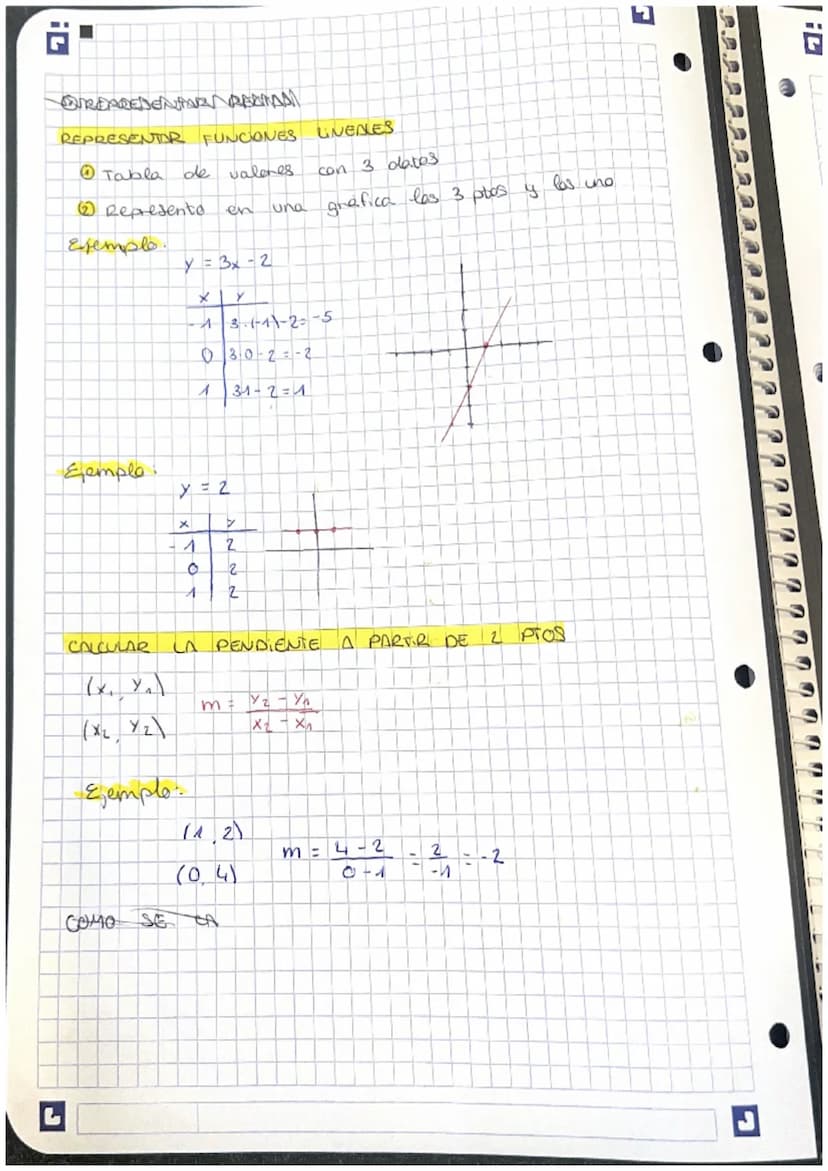 REPRESENTAR RECTAS
REPRESENTAR FUNCIONES LINEALES
① Tabla de valores con 3 datos
② Represento en una gráfica los 3 ptos y los uno
Ejemplo:
y = 3x - 2
x | y
-1 | 3·(-1)-2=-5
0 | 3·0-2=-2
1 | 3·1-2=1
Ejemplo:
y = 2
x | y
-1 | 2
0 | 2
1 | 2
CALCULAR LA PENDIENTE A PARTIR DE 2 PTOS
(x₁, y₁)
(x₂, y₂)
m = (y₂ - y₁) / (x₂ - x₁)
Ejemplo:
(1, 2)
(0, 4)
m = (4 - 2) / (0 - 1) = 2 / -1 = -2
COMO SE CA